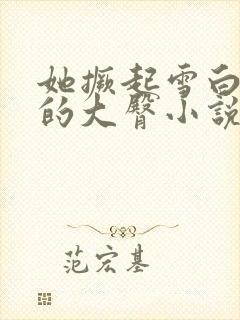 她撅起雪白
的大臀小說
范宏基